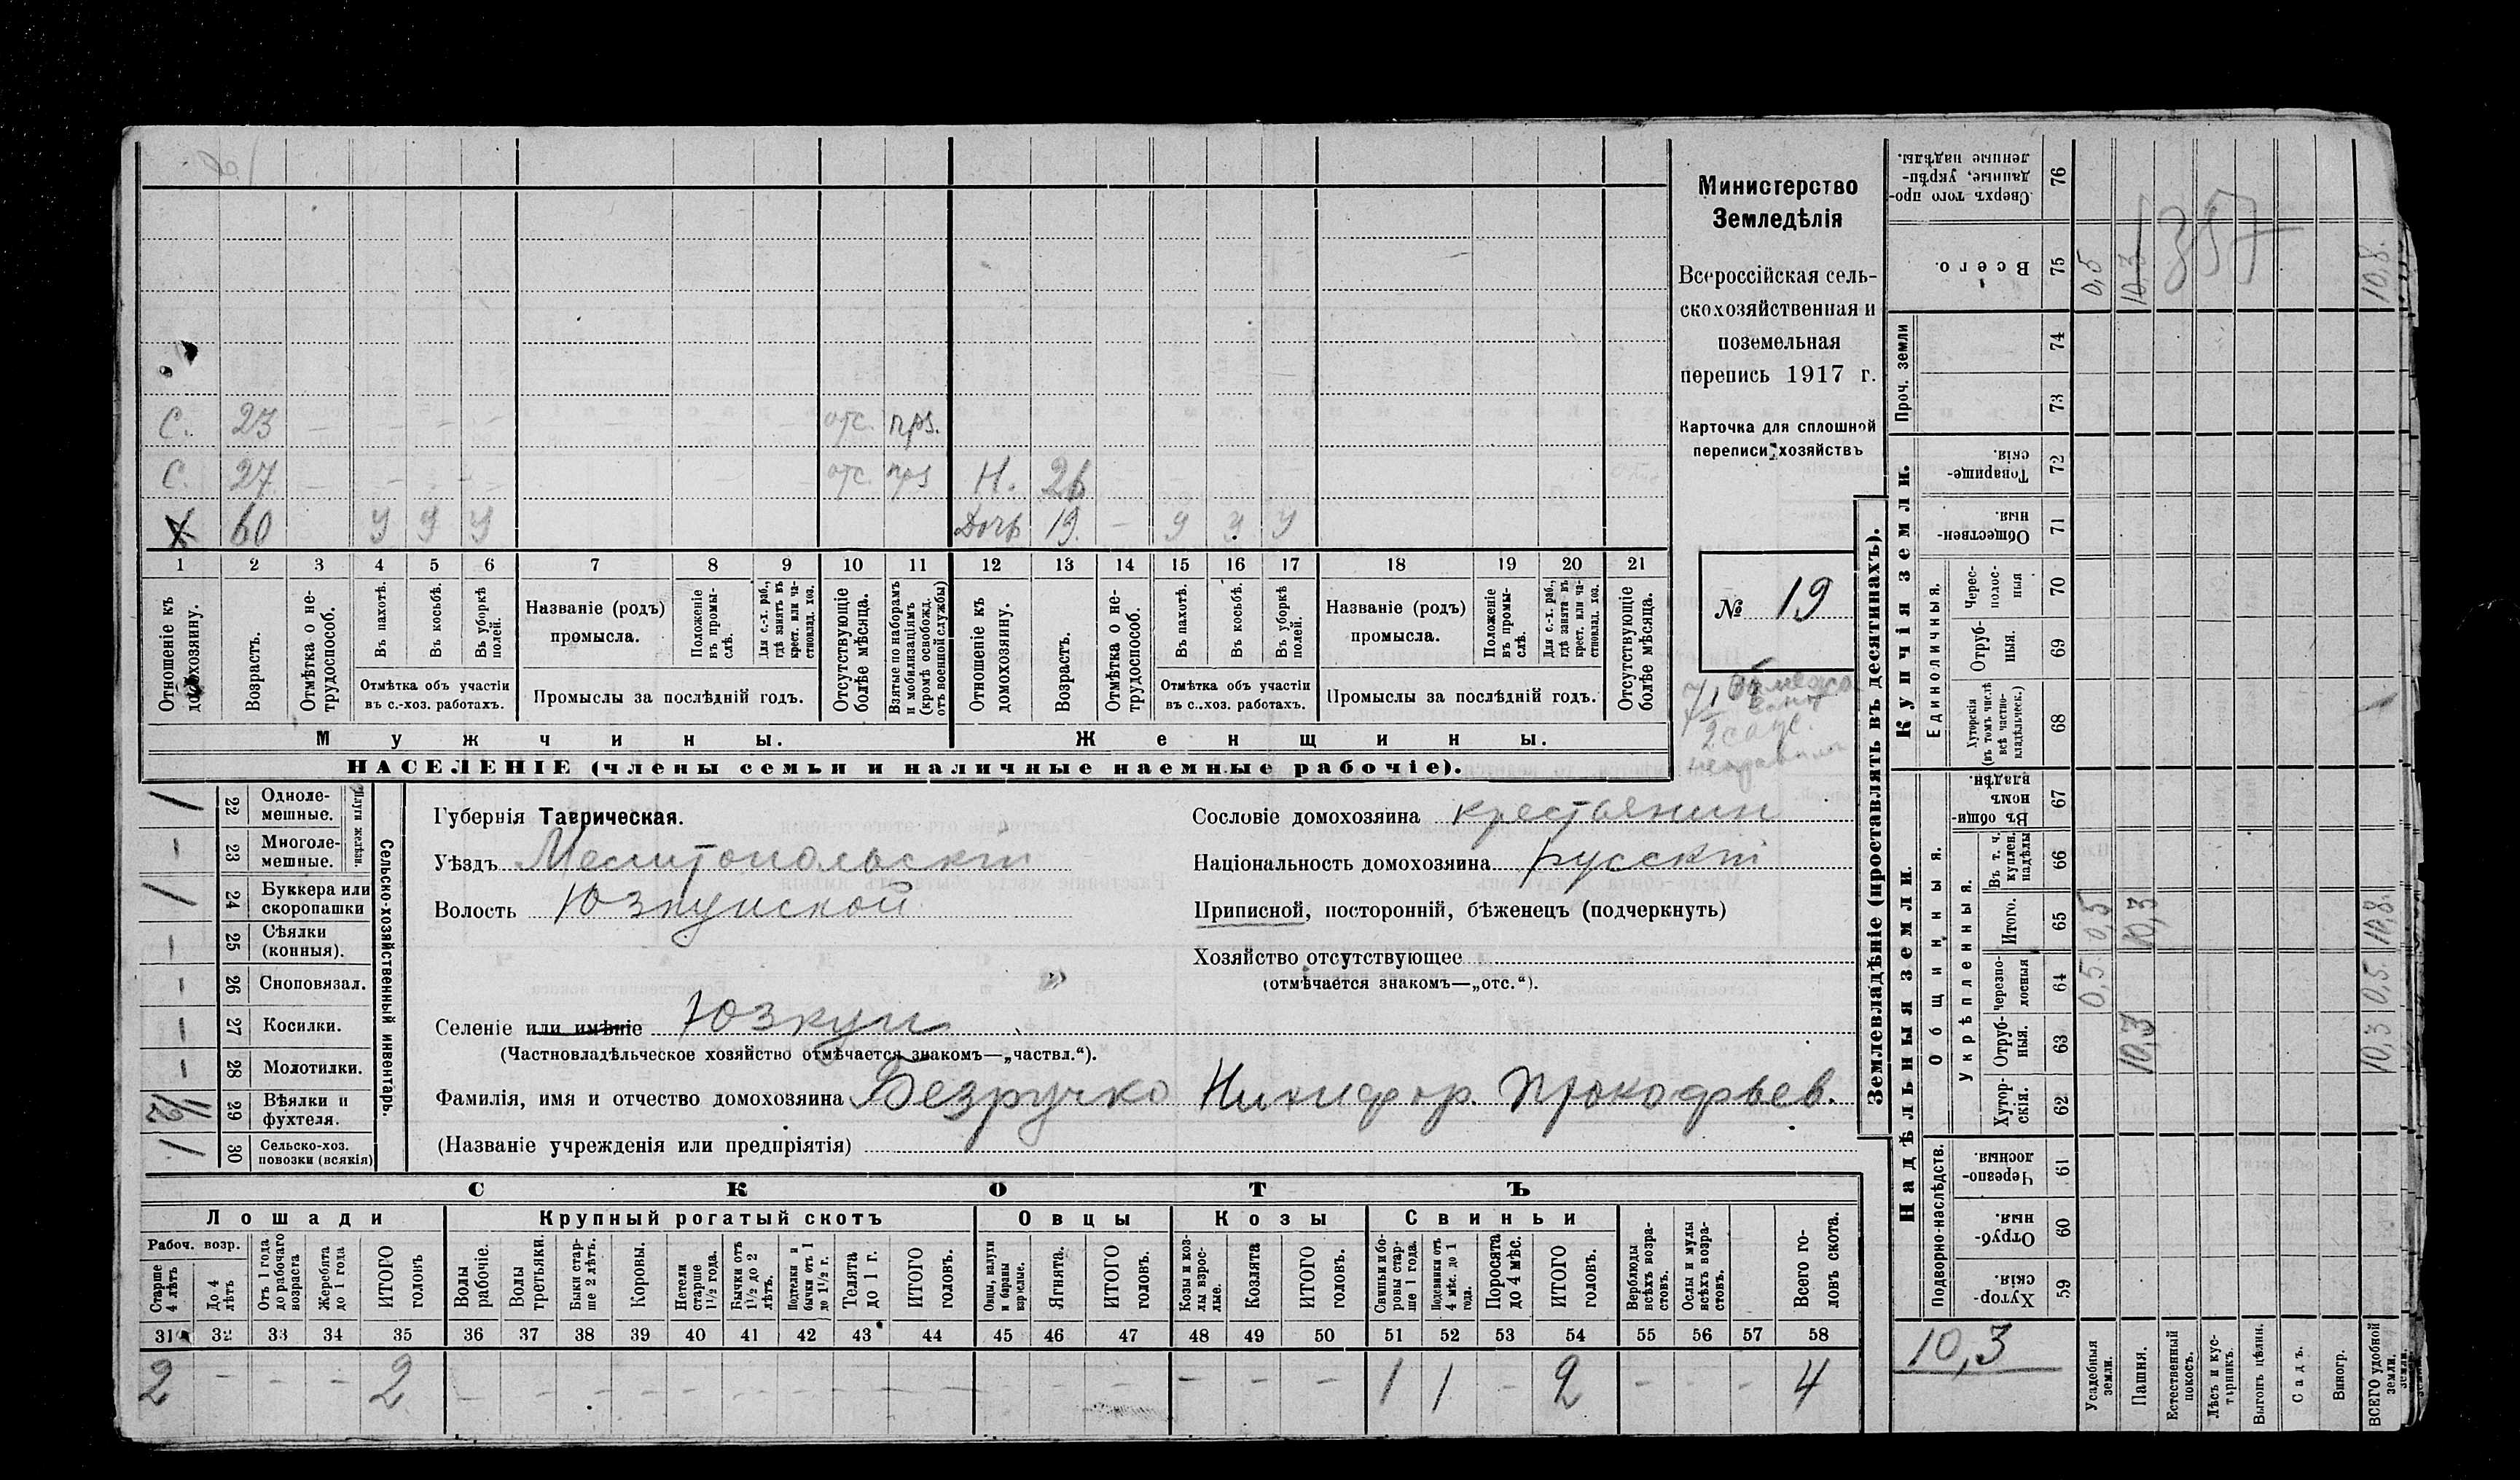 Министерство
Земледѣлія
Всероссійская сель-
скохозяйственная и
поземельная
перепись 1917 г.
Карточка для сплошной
переписи хозяйствъ
№ 19
С. 23 — — — — отс. прз.
С. 27 — — — — отс. прз Н. 26
Х 60 у у у Дочь 19 — у у у
1 2 3 4 5 6 7 8 9 10 11 12 13 14 15 16 17 18 19 20 21
Отношеніе къ домохозяину.
Возрастъ.
Отмѣтка о не-трудоспособ.
Въ пахотѣ.
Въ косьбѣ.
Въ уборкѣ полей.
Отмѣтка объ участіи
въ с.-хоз. работахъ.
Названіе (родъ)
промысла.
Положеніе въ промы-слѣ.
Для с.-х. раб., гдѣ занятъ въ крест. или ча-стновлад. хоз.
Промыслы за послѣдній годъ.
Отсутствующіе болѣе мѣсяца.
Взятые по наборамъ и мобилизаціямъ (кромѣ освобожд. отъ военной службы)
Отношеніе къ домохозяину.
Возрастъ.
Отмѣтка о не-трудоспособ.
Въ пахотѣ.
Въ косьбѣ.
Въ уборкѣ полей.
Отмѣтка объ участіи
въ с.-хоз. работахъ.
Названіе (родъ)
промысла.
Положеніе въ промы-слѣ.
Для с.-х. раб., гдѣ занята въ крест. или ча-стновлад. хоз.
Промыслы за послѣдній годъ.
Отсутствующіе болѣе мѣсяца.
Мужчины. Женщины.
НАСЕЛЕНІЕ (члены семьи и наличные наемные рабочіе).
Сельско-хозяйственный инвентарь.
Плуги желѣзн.
1 22 Однолемешные.
— 23 Многолемешные.
1 24 Буккера или скоропашки
— 25 Сѣялки (конныя).
— 26 Сноповязал.
— 27 Косилки.
— 28 Молотилки.
29 Вѣялки и фухтеля.
1 30 Сельско-хоз. повозки (всякія)
Губернія Таврическая.
Уѣздъ Мелитопольскій
Волость Юзкуйской
Селеніе или имѣніе Юзкуи
(Частновладѣльческое хозяйство отмѣчается знакомъ—„частвл.“).
Фамилія, имя и отчество домохозяина Безручко Никифор. Прокофьев.
(Названіе учрежденія или предпріятія)
Сословіе домохозяина крестьянин
Національность домохозяина русскій
Приписной, посторонній, бѣженецъ (подчеркнуть)
Хозяйство отсутствующее
(отмѣчается знакомъ—„отс.“).
СКОТЪ
Лошади Крупный рогатый скотъ Овцы Козы Свиньи
Рабоч. возр.
Старше 4 лѣтъ
До 4 лѣтъ
Отъ 1 года до рабочаго возраста
Жеребята до 1 года
ИТОГО головъ
Волы рабочіе.
Волы третьяки.
Быки стар-ше 2 лѣтъ.
Коровы.
Нетели старше 1½ года.
Бычки отъ 1½ до 2 лѣтъ.
Подтелки и бычки отъ 1 до 1½ г.
Телята до 1 г.
ИТОГО головъ.
Овцы, валухи и бараны взрослые.
Ягнята.
ИТОГО головъ.
Козы и коз-лы взрос-лые.
Козлята
ИТОГО головъ.
Свиньи и бо-ровы стар-ше 1 года.
Подсвинки отъ 4 мѣс. до 1 года.
Поросята до 4 мѣс.
ИТОГО головъ.
Верблюды всѣхъ возра-стовъ.
Ослы и мулы всѣхъ возра-стовъ.
Всего го-ловъ скота.
31 32 33 34 35 36 37 38 39 40 41 42 43 44 45 46 47 48 49 50 51 52 53 54 55 56 57 58
2 — — — 2 — — — — — — — — — — — — — — — 1 1 — 2 — — — 4
Землевладѣніе (проставлять въ десятинахъ).
Купчія земли.
Надѣльныя земли.
Сверхъ того про-данные, укрѣп-ленные надѣлы. 76
Всего. 75 0,5 10,3 357 10,8.
Проч. земли 74 73
Товарище-скія. 72
Обществен-ныя. 71
Единоличныя.
Черес-полос-ныя 70
Отруб-ныя. 69
Хуторскія (въ томъ числѣ всѣ частно-владѣльческ.) 68
Общинныя.
Въ общи-номъ владѣн. 67
Укрѣпленныя.
Въ т. ч. куплен. надѣлы 66
Итого. 65 0,5 10,3 10,8.
Черезпо-лосныя 64 0,5. 0,5.
Отруб-ныя. 63 10,3 10,3
Хутор-скія. 62
Подворно-наслѣдств.
Черезпо-лосныя. 61
Отруб-ныя. 60
Хутор-скія. 59
10,3
Усадебныя земли.
Пашня.
Естественный покосъ.
Лѣсъ и кус-тарникъ.
Выгонъ цѣлин.
Садъ.
Виногр.
ВСЕГО удобной земли.